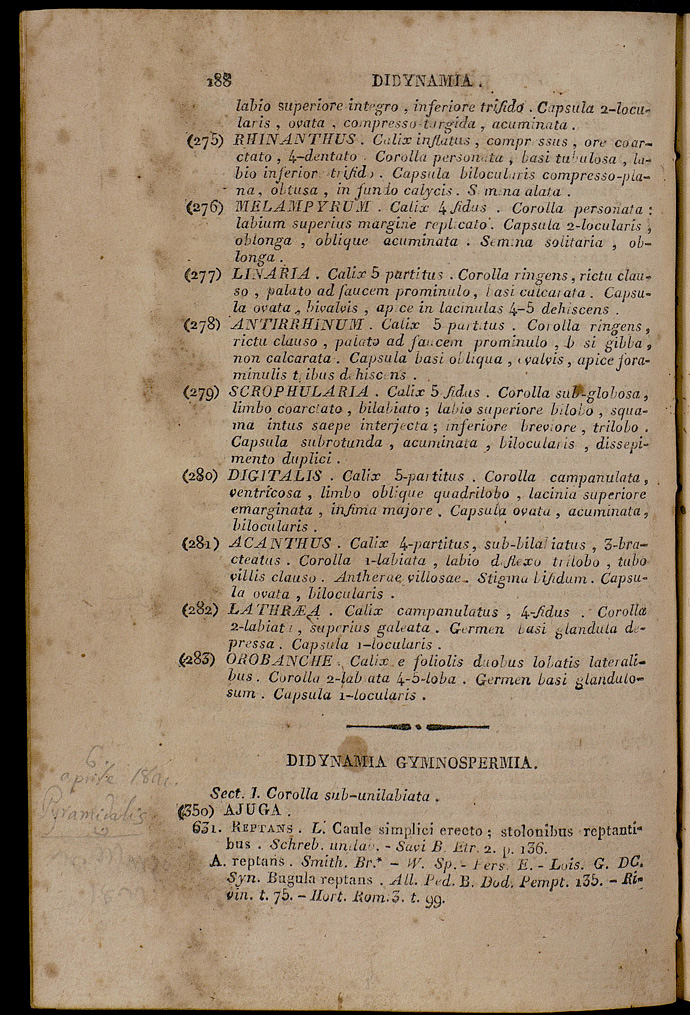 188 DIDYNAMIA.
labio superiore integro, inferiore trifido. Capsula 2-locu-
laris, ovata, compresso-turgida, acuminata.
(275) RHINANTHUS. Calix inflatus, compressus, ore coar-
ctato, 4-dentato. Corolla personata, basi tubulosa, la-
bio inferiore trifido. Capsula bilocularis compresso-pla-
na, obtusa, in fundo calycis. Semina alata.
(276) MELAMPYRUM. Calix 4 fidus. Corolla personata:
labium superius margine replicato. Capsula 2-locularis,
oblonga, oblique acuminata. Semina solitaria, ob-
longa.
(277) LINARIA. Calix 5 partitus. Corolla ringens, rictu clau-
so, palato ad faucem prominulo, basi calcarata. Capsu-
la ovata, bivalvis, apice in lacinulas 4-5 dehiscens.
(278) ANTIRRHINUM. Calix 5 partitus. Corolla ringens,
rictu clauso, palato ad faucem prominulo, basi gibba,
non calcarata. Capsula basi obliqua, evalvis, apice fora-
minulis tribus dehiscens.
(279) SCROPHULARIA. Calix 5 fidus. Corolla sub-globosa,
limbo coarctato, bilabiato; labio superiore bilobo, squa-
ma intus saepe interjecta; inferiore breviore, trilobo.
Capsula subrotunda, acuminata, bilocularis, dissepi-
mento duplici.
(280) DIGITALIS. Calix 5-partitus. Corolla campanulata,
ventricosa, limbo oblique quadrilobo, lacinia superiore
emarginata, infima majore. Capsula ovata, acuminata,
bilocularis.
(281) ACANTHUS. Calix 4-partitus, sub-bilabiatus, 3-bra-
cteatus. Corolla 1-labiata, labio deflexo trilobo, tubo
villis clauso. Antherae villosae. Stigma bifidum. Capsu-
la ovata, bilocularis.
(282) LATHRÆA. Calix campanulatus, 4-fidus. Corolla
2-labiata, superius galeata. Germen basi glandula de-
pressa. Capsula 1-locularis.
(283) OROBANCHE. Calix e foliolis duobus lobatis laterali-
bus. Corolla 2-labiata 4-5-loba. Germen basi glandulo-
sum. Capsula 1-locularis.
DIDYNAMIA GYMNOSPERMIA.
Sect. I. Corolla sub-unilabiata.
(350) AJUGA.
631. REPTANS. L. Caule simplici erecto; stolonibus reptanti-
bus. Schreb. unilab. - Savi B. Etr. 2. p. 136.
A. reptans. Smith. Br.* - W. Sp. - Pers. E. - Lois. G. DC.
Syn. Bugula reptans. All. Ped. B. Dod. Pempt. 135. - Ri-
vin. t. 75. - Hort. Rom. 3. t. 99.
6
aprile
Pyramidalis